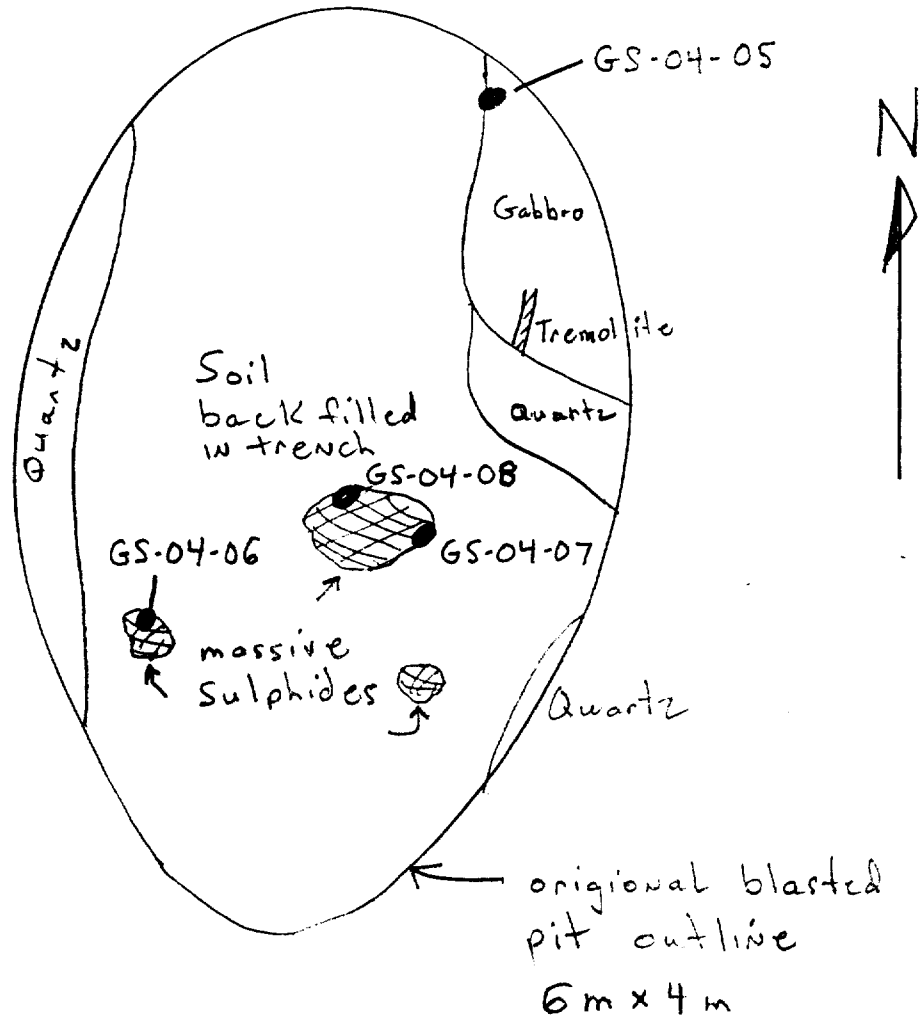 GS-04-05
N
Gabbro
Tremolite
Quartz
Quartz
Soil
back filled
in trench
GS-04-08
GS-04-06
GS-04-07
massive
Sulphides
Quartz
origional blasted
pit outline
6 m x 4 m